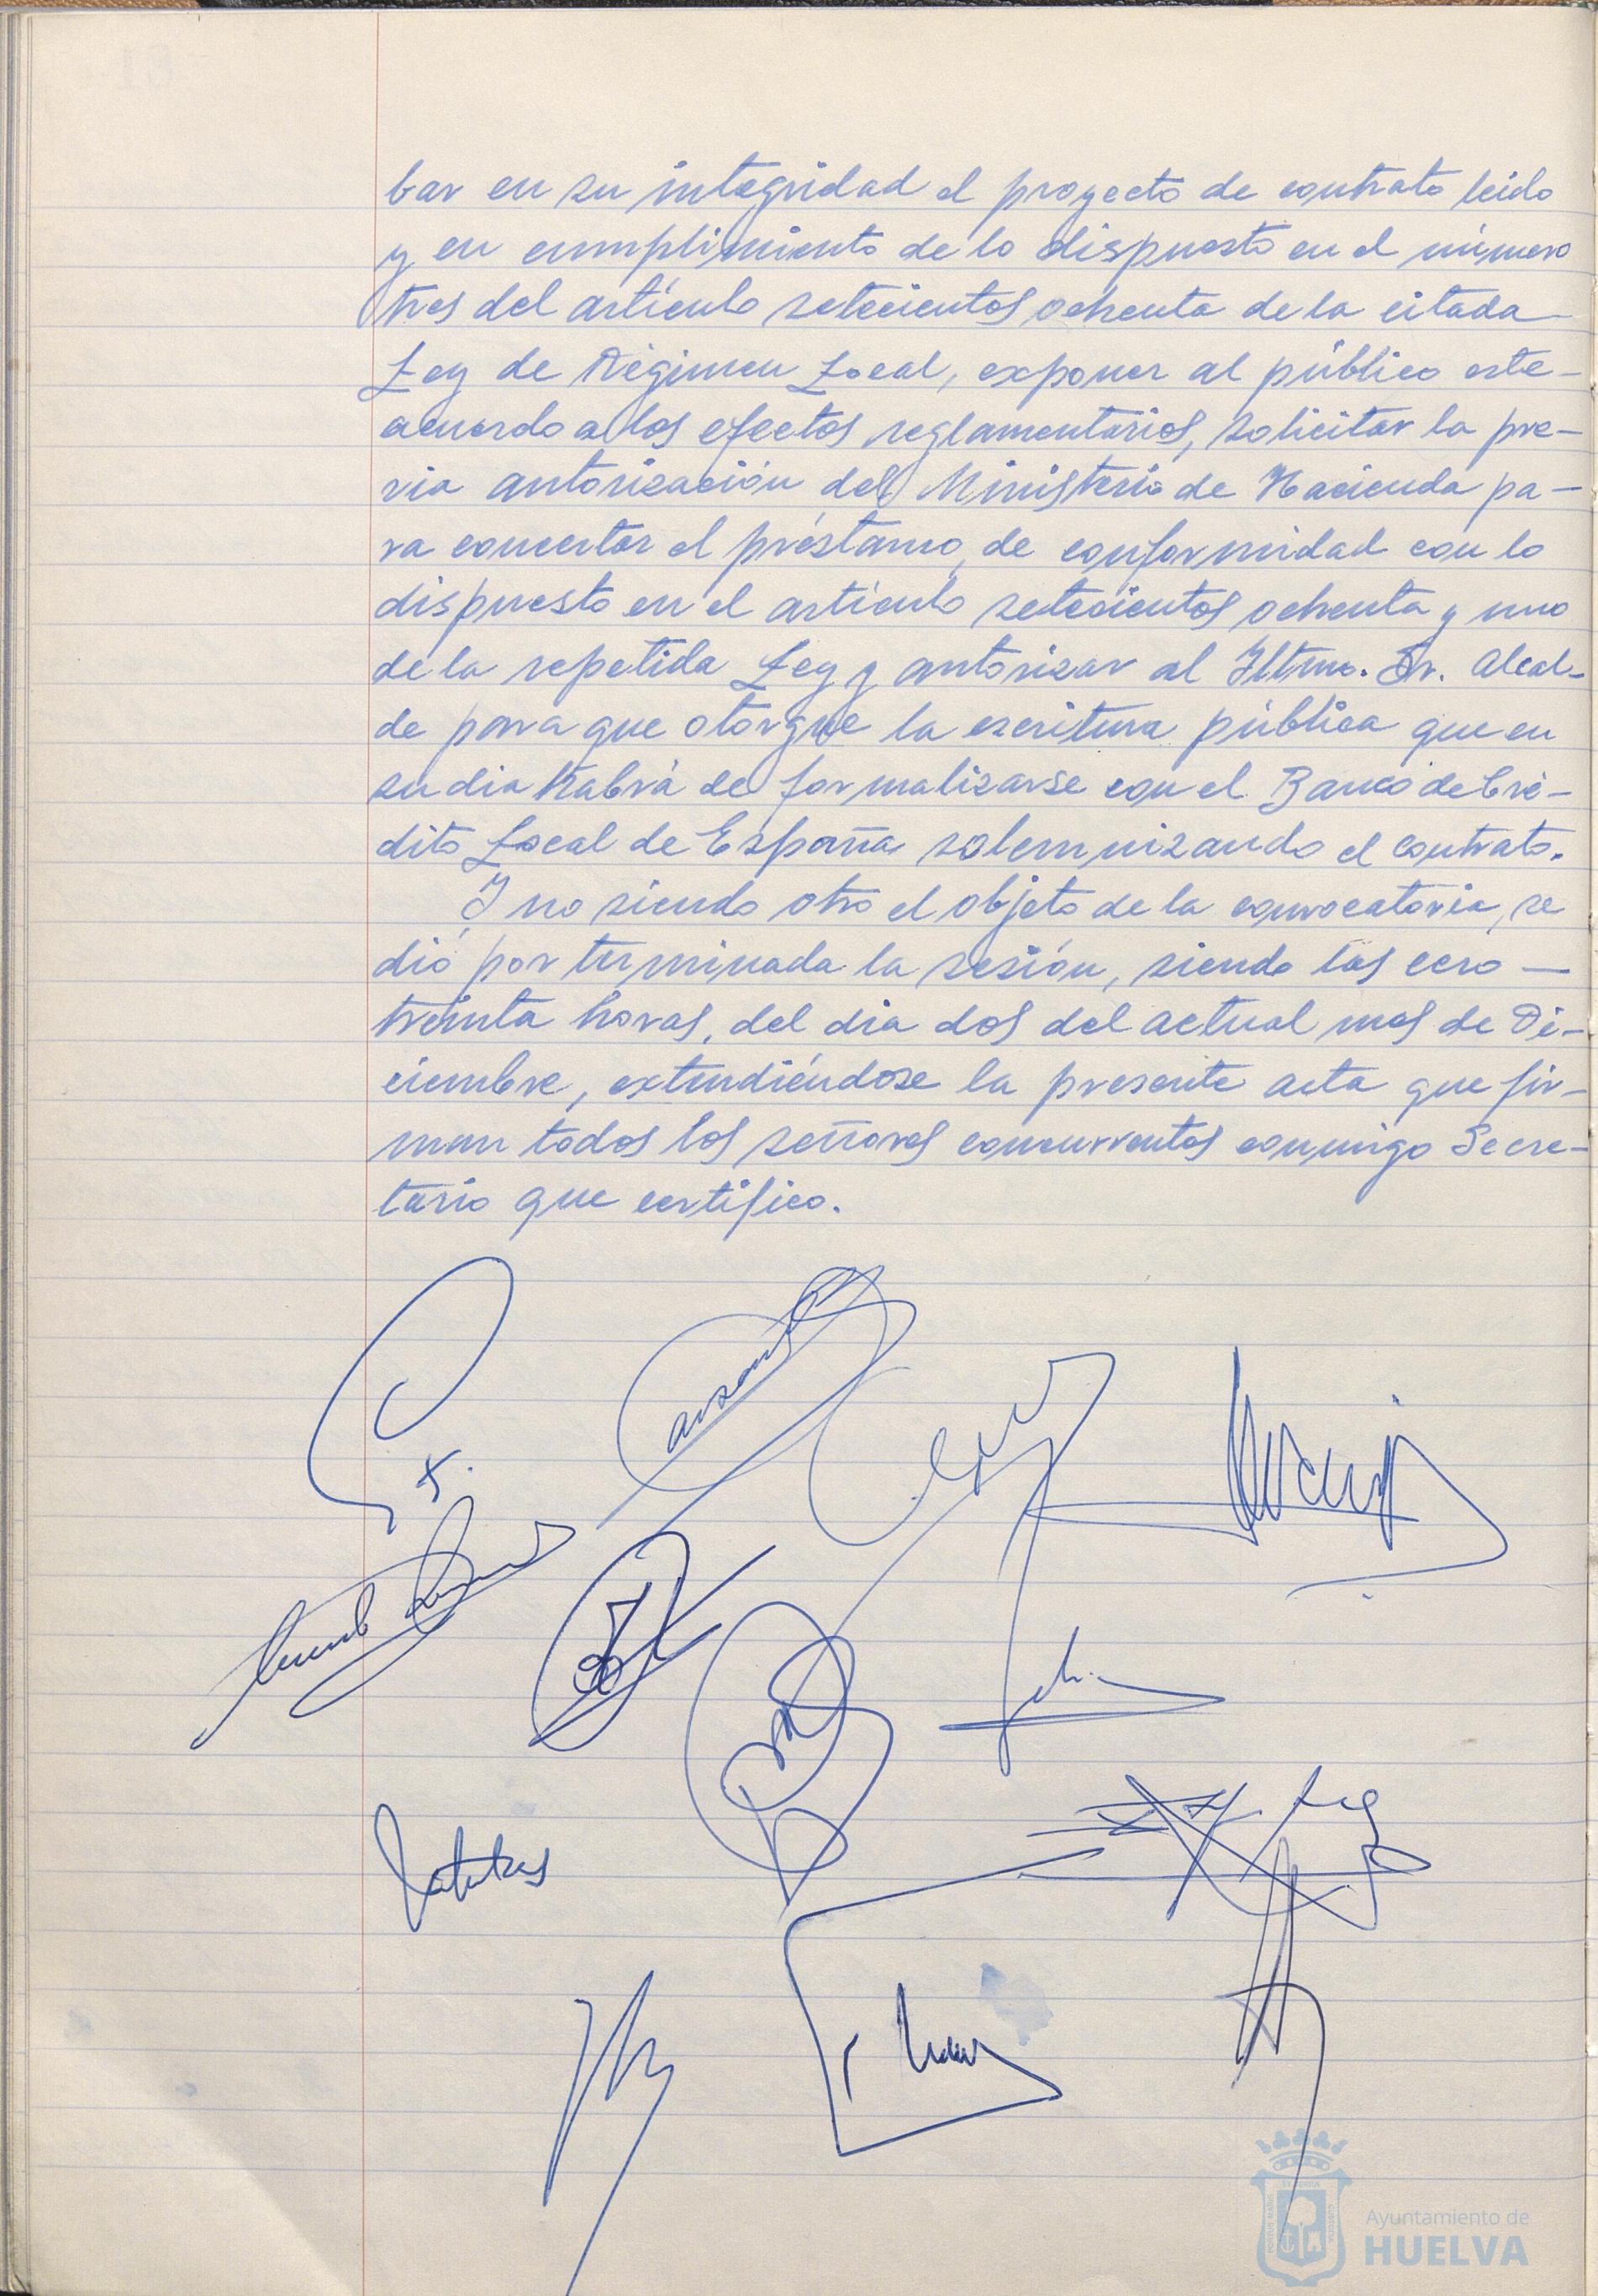 bar en su integridad el proyecto de contrato leido
y en cumplimiento de lo dispuesto en el número
tres del artículo setecientos ochenta de la citada
Ley de Régimen Local, exponer al público este-
acuerdo a los efectos reglamentarios, solicitar la pre-
via autorización del Ministerio de Hacienda pa-
ra concertar el préstamo, de conformidad con lo
dispuesto en el artículo setecientos ochenta y uno
de la repetida Ley y autorizar al Iltmo. Sr. Alcal-
de para que otorgue la escritura pública que en
su dia habrá de formalizarse con el Banco de Cré-
dito Local de España solemnizando el contrato.
Y no siendo otro el objeto de la convocatoria, se
dió por terminada la sesión, siendo las cero —
treinta horas, del dia dos del actual mes de Di-
ciembre, extendiéndose la presente acta que fir-
man todos los señores concurrentes conmigo Secre-
tario que certifico.
Ayuntamiento de
HUELVA